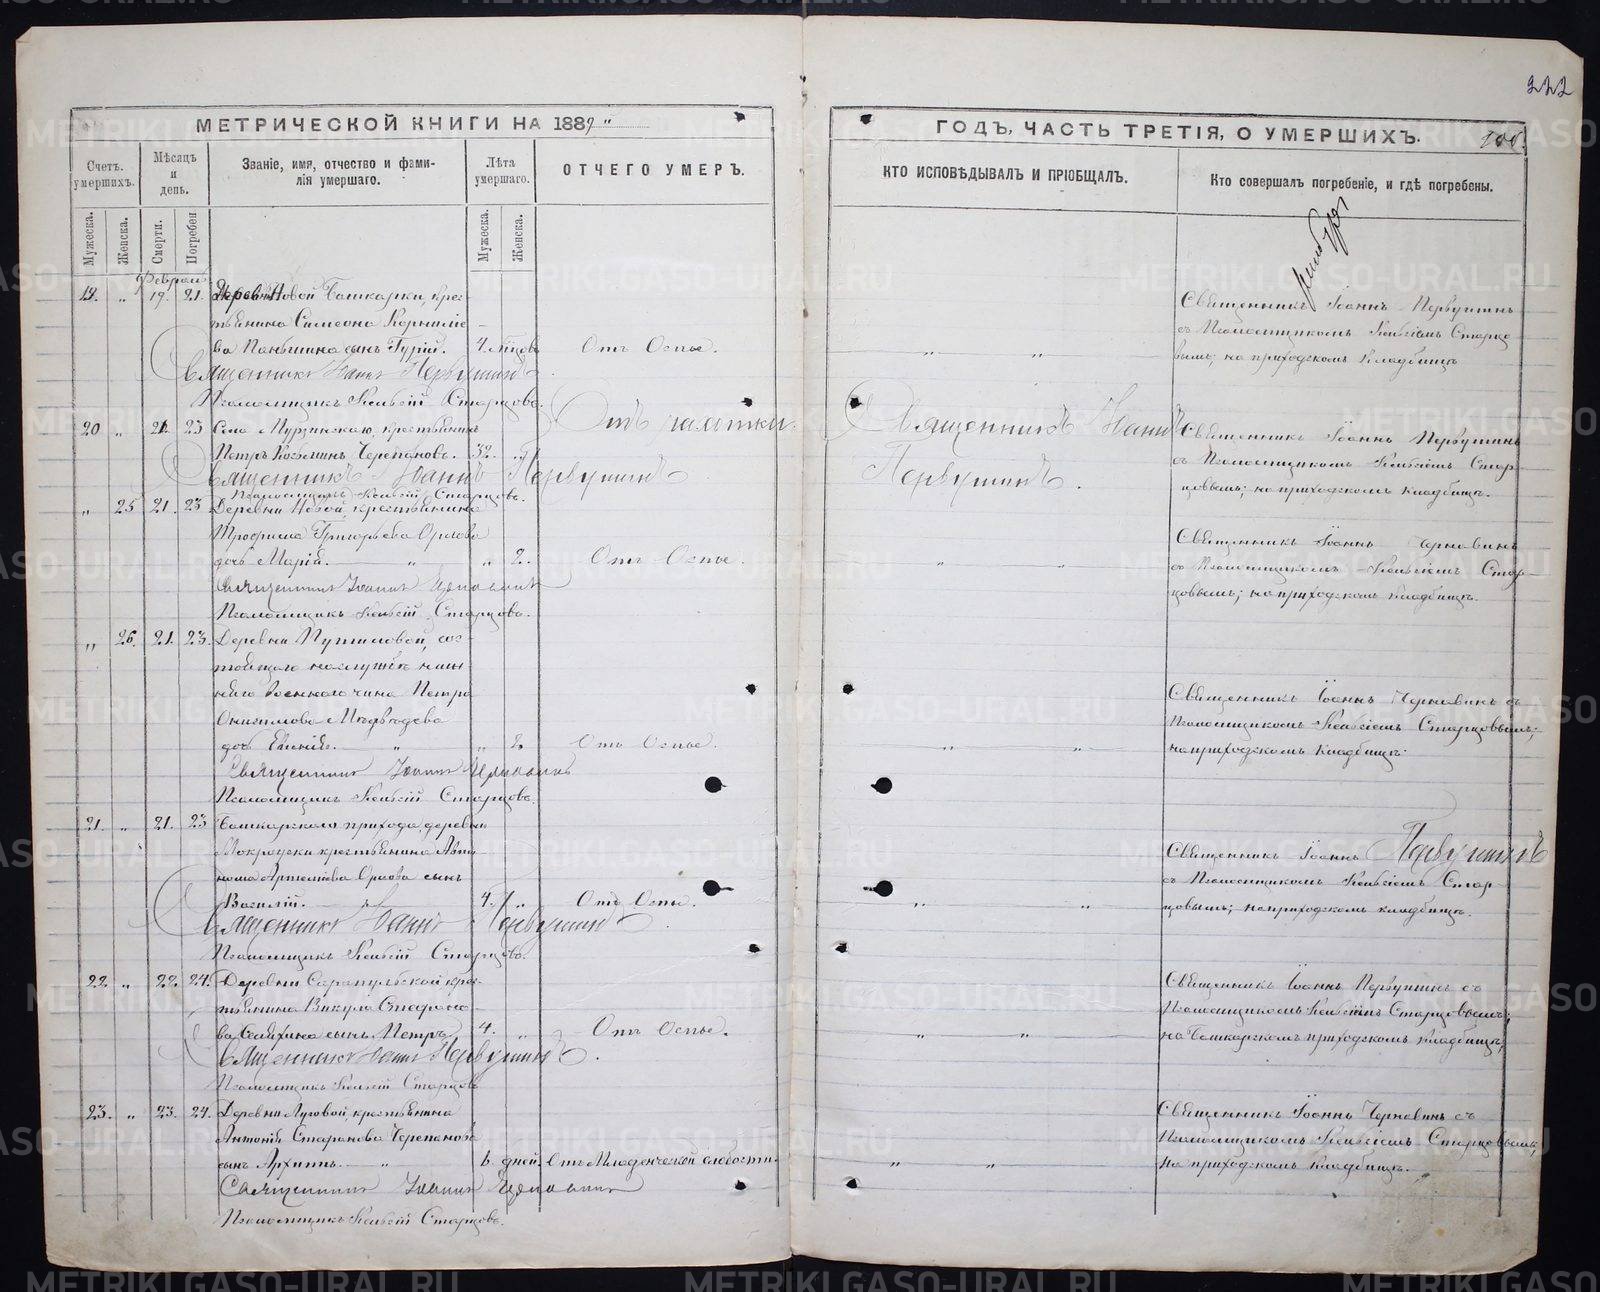 222
МЕТРИЧЕСКОЙ КНИГИ НА 1889
ГОДЪ, ЧАСТЬ ТРЕТІЯ, О УМЕРШИХЪ.
Счетъ умершихъ.
Мѣсяцъ и день.
Званіе, имя, отчество и фамилія умершаго.
Лѣта умершаго.
ОТЧЕГО УМЕРЪ.
КТО ИСПОВѢДЫВАЛЪ И ПРІОБЩАЛЪ.
Кто совершалъ погребеніе, и гдѣ погребены.
Мужеска.
Женска.
Смерти.
Погребен
Мужеска.
Женска.
19. " 19. 21. Деревни Новой Башкарки, крес-
тьянина Симеона Корниліе-
ва Паньшина сынъ Гурій. 4. мѣсяцовъ Отъ Оспы. " "
Священникъ Іоаннъ Первушинъ
Псаломщикъ Старцовъ.
Священникъ Іоаннъ Первушинъ
съ Псаломщикомъ Старцо-
вымъ, на приходскомъ кладбищѣ
20 " 21. 23 Села Мурзинскаго, крестьянинъ
Петръ Козьминъ Черепановъ. 32. " Отъ чахотки.
Священникъ Іоаннъ Первушинъ
Псаломщикъ Старцовъ.
Священникъ Іоаннъ
Первушинъ.
Священникъ Іоаннъ Первушинъ
съ Псаломщикомъ Стар-
цовымъ; на приходскомъ кладбищѣ.
" 25 21. 23 Деревни Новой, крестьянина
Трофима Григорьева Орлова
дочь Марія. " " 2. Отъ Оспы. " "
Священникъ Іоаннъ Чернавинъ
Псаломщикъ Старцовъ.
Священникъ Іоаннъ Чернавинъ
съ Псаломщикомъ Стар-
цовымъ; на приходскомъ кладбищѣ.
" 26. 21. 23. Деревни Путиловой, сос-
военнаго чина Петра
Онисимова Медвѣдева
дочь " " 2 Отъ Оспы. " "
Священникъ Іоаннъ Чернавинъ
Псаломщикъ Старцовъ.
Священникъ Іоаннъ Чернавинъ съ
Псаломщикомъ Старцовымъ;
на приходскомъ кладбищѣ.
21. " 21. 23 Башкарскаго прихода, деревни
Мокроуски крестьянина
Артемьева Орлова сынъ
Василій. " 4. " Отъ Оспы. " "
Священникъ Іоаннъ Первушинъ
Псаломщикъ Старцовъ.
Священникъ Іоаннъ Первушинъ
съ Псаломщикомъ Стар-
цовымъ; на приходскомъ кладбищѣ.
22. " 22. 24. Деревни Сарапульской крес-
тьянина Викула Стефано-
ва сынъ Петръ 4. " Отъ Оспы. " "
Священникъ Іоаннъ Первушинъ
Псаломщикъ Старцовъ
Священникъ Іоаннъ Первушинъ съ
Псаломщикомъ Старцовымъ;
на Башкарскомъ приходскомъ кладбищѣ,
23. " 23. 24. Деревни Луговой, крестьянина
Антонія Черепанова
сынъ Архиппъ. " 6. дней. Отъ Младенческой слабости. " "
Священникъ Іоаннъ Чернавинъ
Псаломщикъ Старцовъ.
Священникъ Іоаннъ Чернавинъ съ
Псаломщикомъ Старцовымъ,
на приходскомъ кладбищѣ.
METRIKI.GASO-URAL.RU